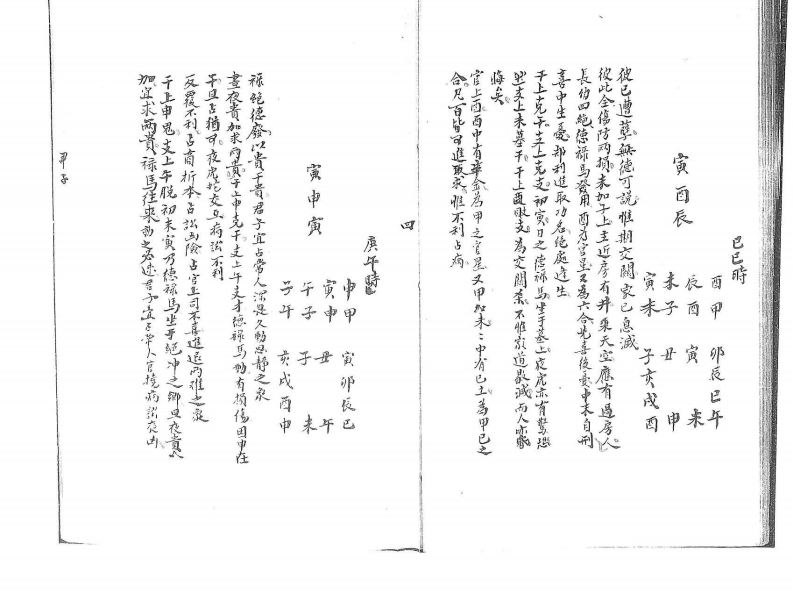 己巳時
酉甲　卯辰巳午
辰酉　寅　　未
未子　丑　　申
寅未　子亥戌酉
寅酉辰
彼已遭孽無德可說惟期交關家已息滅
彼此全傷防兩損未加子上主近房有井乘天空應有過房人
長伯四絕德祿馬發用酉為官星又為六合先喜後憂申末自刑
喜中生憂却利進取功名絕處逢生
干上克干支上克支初寅日之德祿馬坐于墓上夜虎亦有驚恐
班支上未墓干干上酉敗支為交關煞不惟家道衰滅而人亦
悔矣
官上酉酉中有辛金為甲之官星又甲加未未中有己土為甲己之
合凡百皆可進取求惟不利占病
四
庚午時
申甲　寅卯辰巳
寅申　丑　　午
午子　子　　未
子午　亥戌酉申
寅申寅
祿絕德廢以貴干貴君子宜占常人深是久動思靜之象
晝夜貴加求兩貴干上申克干支上午支才德祿馬動有損傷因申在
午旦占猶可夜虎蛇交互病訟不利
反覆不利占商折本占訟凶險占官上司不喜進退兩難之象
干上申鬼支上午脫初末寅乃德祿馬坐于絕冲之鄉旦夜貴人
加宜求兩貴祿馬往來動之必速君子宜占常人官撓病訟災凶
甲子